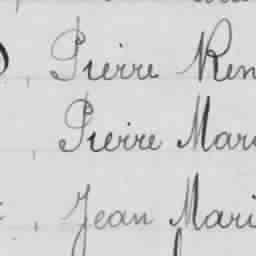 Pierre Ren
Pierre Mari
Jean Mari